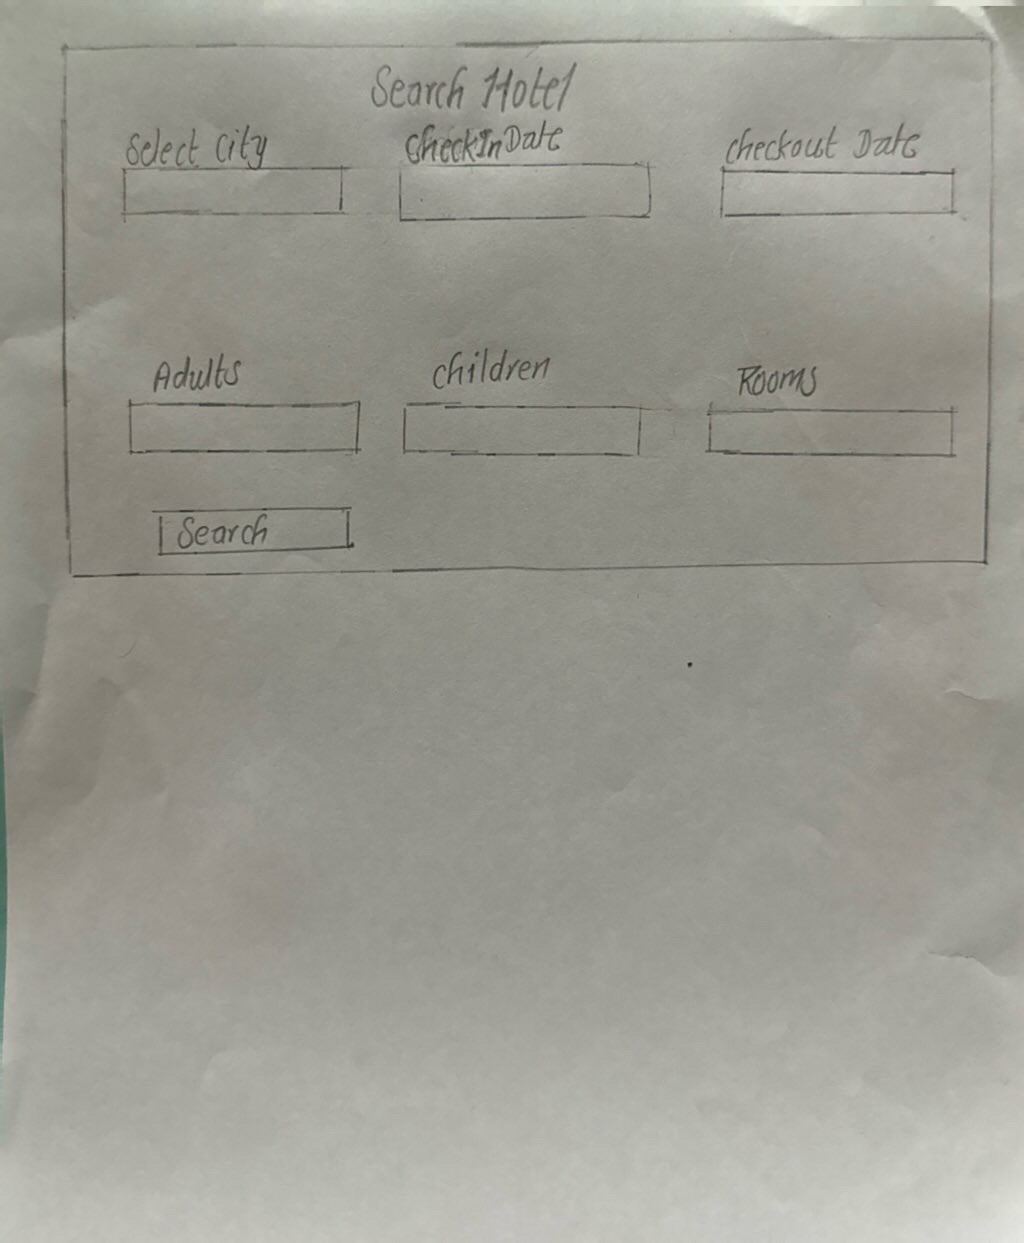 Search Hotel
Select City
CheckIn Date
checkout Date
Adults
children
Rooms
Search